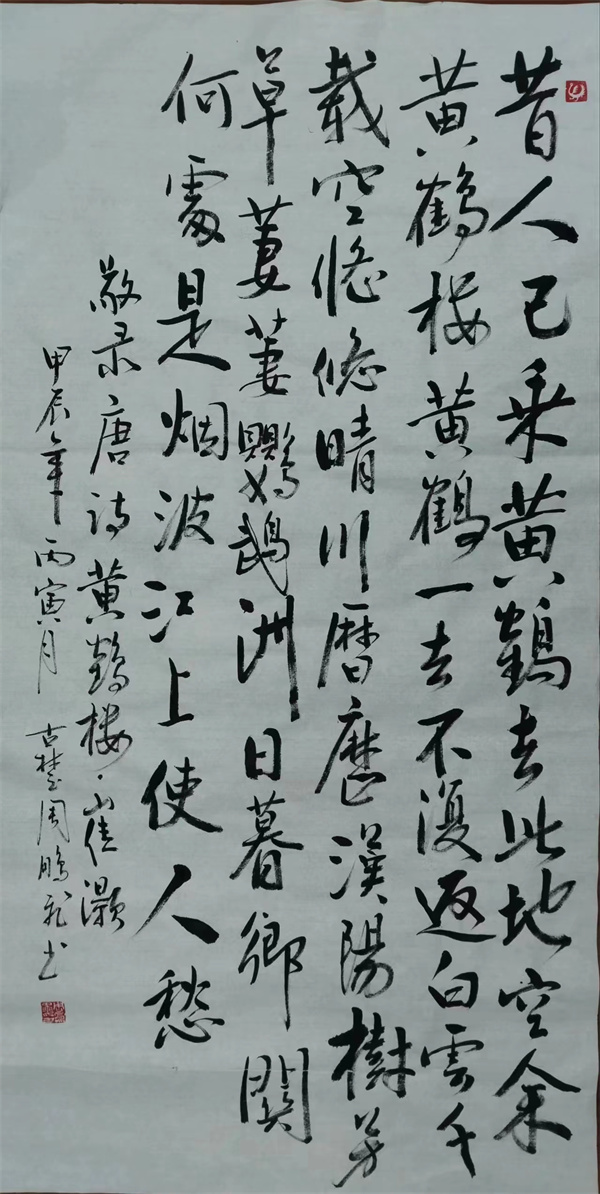 昔人已乘黄鶴去此地空余
黄鶴楼黄鶴一去不復返白雲千
載空悠悠晴川暦歷漢陽樹芳
草萋萋鸚鵡洲日暮鄉關
何處是烟波江上使人愁
敬录唐诗黄鶴楼·崔灏
甲辰年丙寅月 古楚周鵬飛书